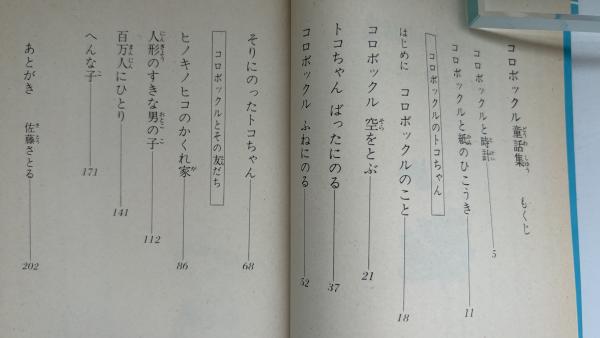 コロボックル童話集 もくじ
コロボックルと時計 5
コロボックルと紙のひこうき 11
コロボックルのトコちゃん
はじめに コロボックルのこと 18
コロボックル 空をとぶ 21
トコちゃん ばったにのる 37
コロボックル ふねにのる 52
そりにのったトコちゃん 68
コロボックルとその友だち
ヒノキノヒコのかくれ家 86
人形のすきな男の子 112
百万人にひとり 141
へんな子 171
あとがき 佐藤さとる 202